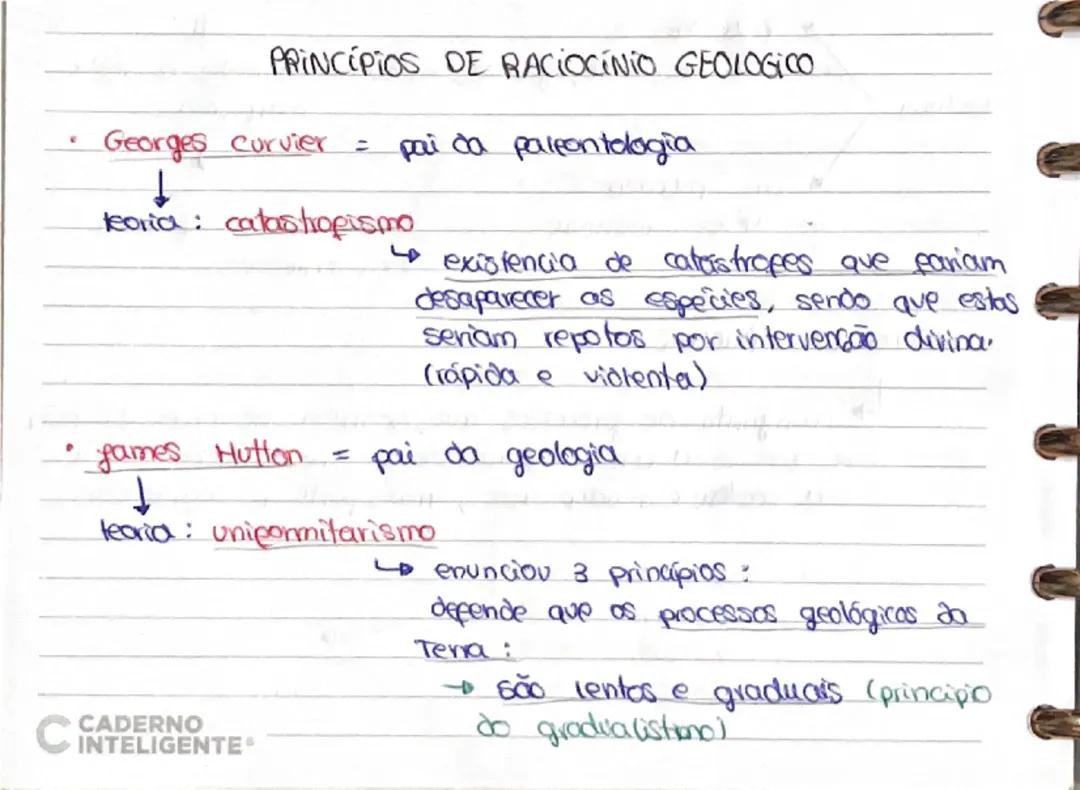 PRINCÍPIOS DE RACIOCÍNIO GEOLOGICO
• Georges Curvier = pai da paleontologia
↓
teoria : catastrofismo
↳ existencia de catástrofes que fariam
desaparecer as espécies, sendo que estas
seriam repotos por intervenção divina.
(rápida e violenta)
• james Hutton = pai da geologia
↓
teoria : uniformitarismo
↳ enunciou 3 princípios :
defende que os processos geológicos da
Terra :
→ são lentos e graduais (principio
do gradualistmo)
CADERNO
INTELIGENTE®